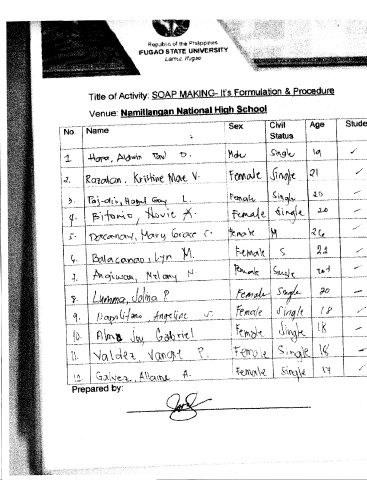 Republic of the Philippines
IFUGAO STATE UNIVERSITY
Lamut, Ifugao
Title of Activity: SOAP MAKING- It's Formulation & Procedure
Venue: Namillangan National High School
No. Name Sex Civil Status Age Stude
1. D. Male Single 19 ✓
2. Kristine Mae V. Female Single 21 ✓
3. L. Female Single 20 ✓
4. Bitonio, Novie Female Single 20 ✓
5. Dacanay, Mary Grace C. Female M 26 ✓
6. Balacanao, Lyn M. Female S 22 ✓
7. N. Female Single ✓
8. Lumma, Jolina P. Female Single 20 ✓
9. Angeline Female Single 18 ✓
10. Joy Gabriel Female Single 18 ✓
11. Valdez, P. Female Single 18 ✓
12. Galvez, A. Female Single 17 ✓
Prepared by: